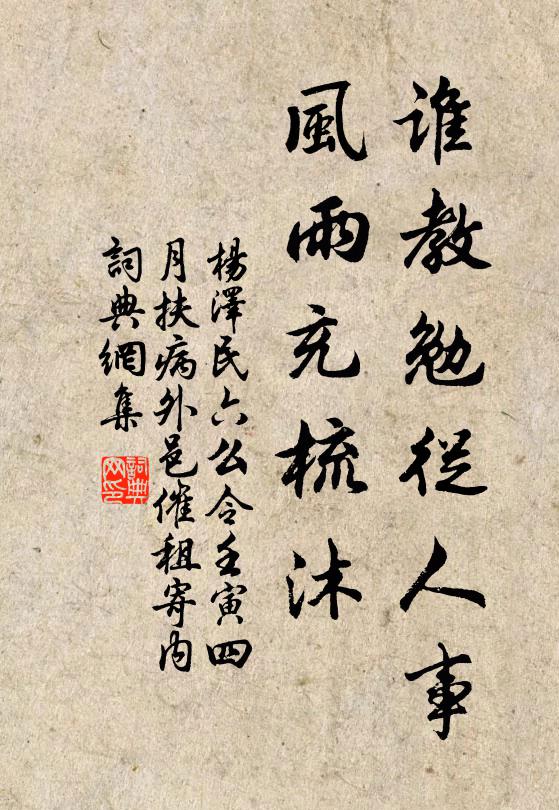 誰教勉從人事
風雨充梳沐
楊澤民六么令壬寅四
月扶病外邑催租寄內
詞典網集
詞典
网印